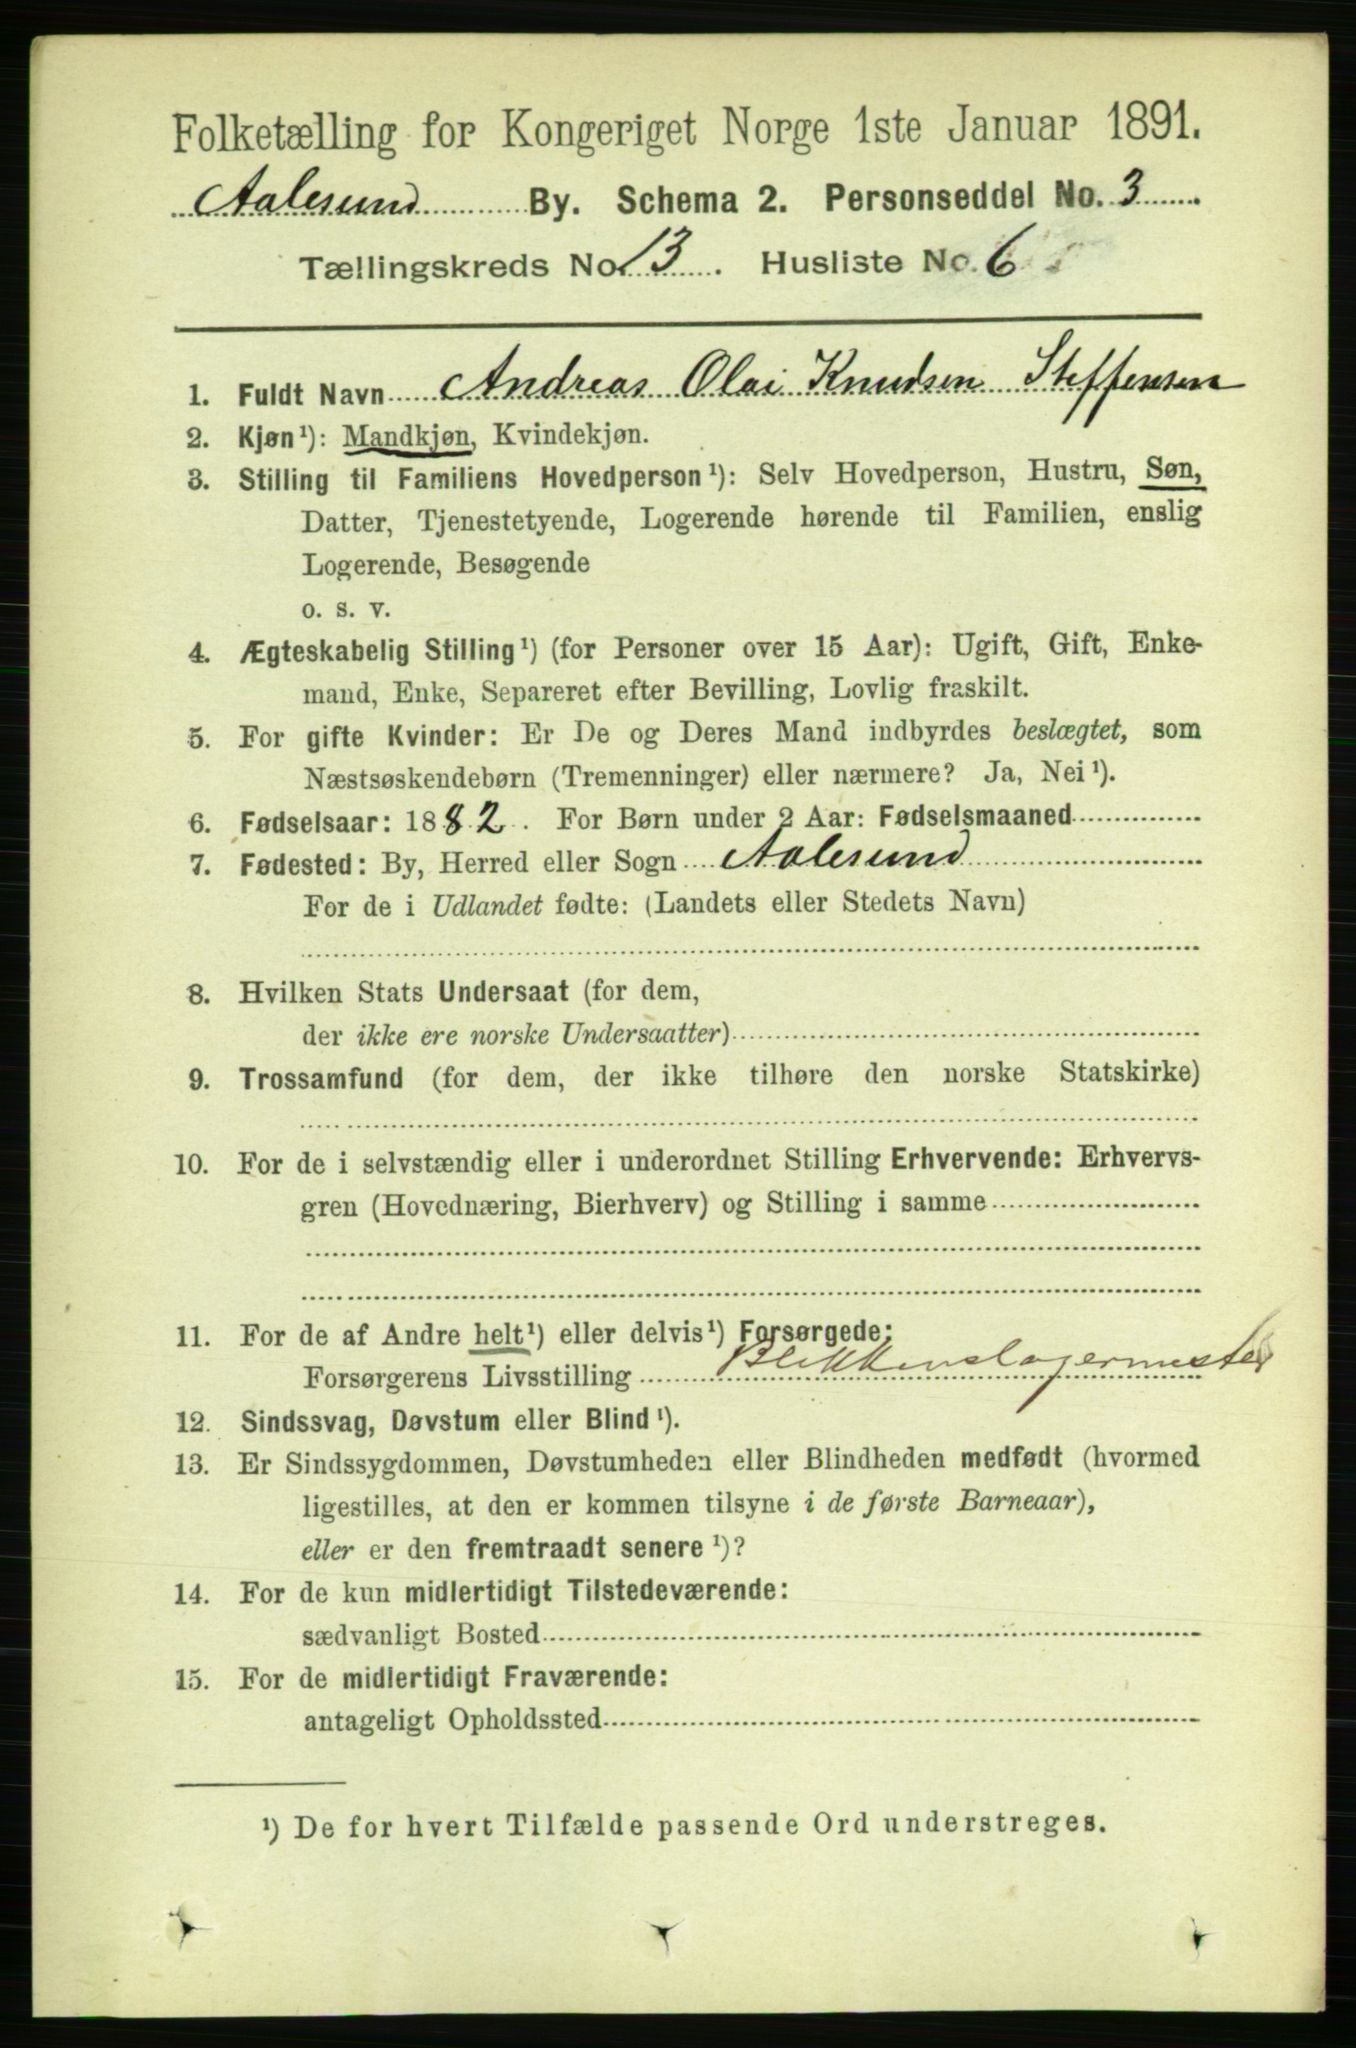 Folketælling for Kongeriget Norge 1ste Januar 1891.
Aalesund By. Schema 2. Personseddel No. 3
Tællingskreds No. 13. Husliste No. 6
1. Fuldt Navn Andreas Olai Knudsen Steffensen
2. Kjøn¹): Mandkjøn, Kvindekjøn.
3. Stilling til Familiens Hovedperson¹): Selv Hovedperson, Hustru, Søn,
Datter, Tjenestetyende, Logerende hørende til Familien, enslig
Logerende, Besøgende
o. s. v.
4. Ægteskabelig Stilling¹) (for Personer over 15 Aar): Ugift, Gift, Enke-
mand, Enke, Separeret efter Bevilling, Lovlig fraskilt.
5. For gifte Kvinder: Er De og Deres Mand indbyrdes beslægtet, som
Næstsøskendebørn (Tremenninger) eller nærmere? Ja, Nei¹).
6. Fødselsaar: 1882. For Børn under 2 Aar: Fødselsmaaned
7. Fødested: By, Herred eller Sogn Aalesund
For de i Udlandet fødte: (Landets eller Stedets Navn)
8. Hvilken Stats Undersaat (for dem,
der ikke ere norske Undersaatter)
9. Trossamfund (for dem, der ikke tilhøre den norske Statskirke)
10. For de i selvstændig eller i underordnet Stilling Erhvervende: Erhvervs-
gren (Hovednæring, Bierhverv) og Stilling i samme
11. For de af Andre helt¹) eller delvis¹) Forsørgede:
Forsørgerens Livsstilling Blikkenslagermester
12. Sindssvag, Døvstum eller Blind¹).
13. Er Sindssygdommen, Døvstumheden eller Blindheden medfødt (hvormed
ligestilles, at den er kommen tilsyne i de første Barneaar),
eller er den fremtraadt senere¹)?
14. For de kun midlertidigt Tilstedeværende:
sædvanligt Bosted
15. For de midlertidigt Fraværende:
antageligt Opholdssted
¹) De for hvert Tilfælde passende Ord understreges.